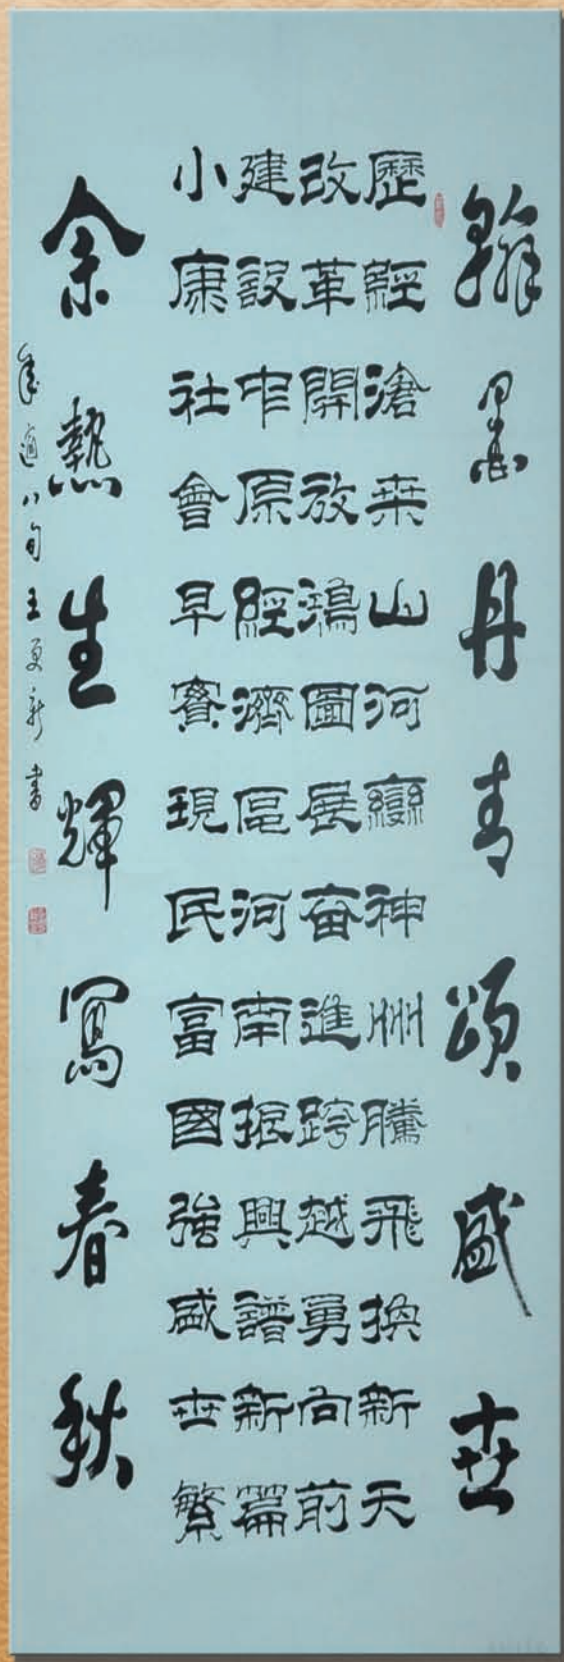 翰墨丹青頌盛世
歷經滄桑山河變神州騰飛換新天
改革開放鴻圖展奋進跨越勇向前
建設中原經濟區河南振興譜新篇
小康社會早實現民富國強盛世繁
余熱生輝寫春秋
年適八旬王更新書